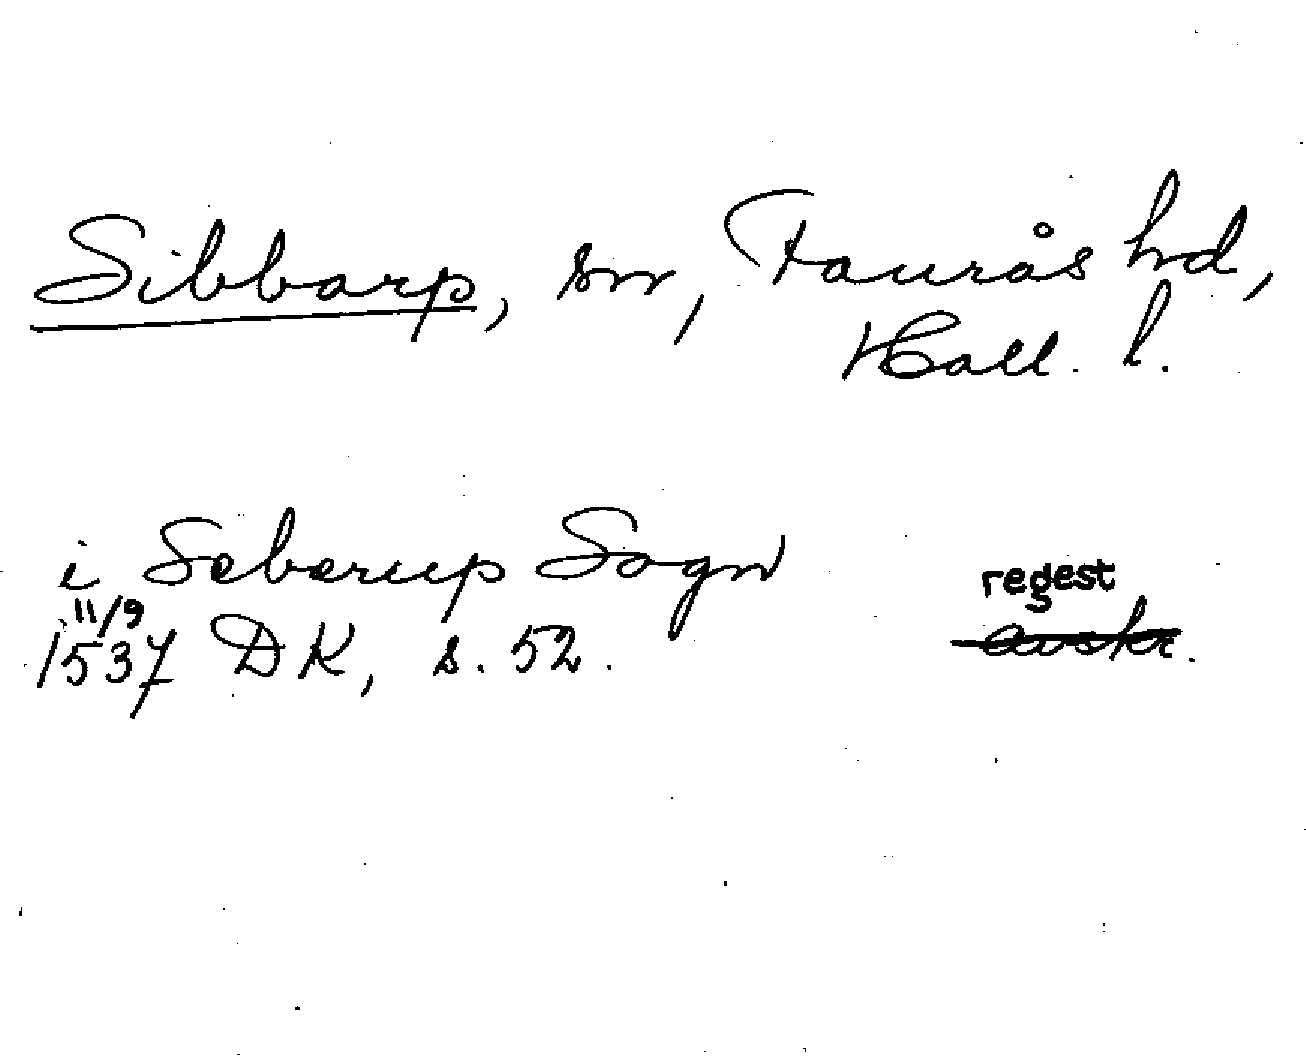 Sibbarp, sn, Faurås hd,
Hall. l.
i Seberup Sogn
regest
11/9
1537 DK, s. 52.
avskr.